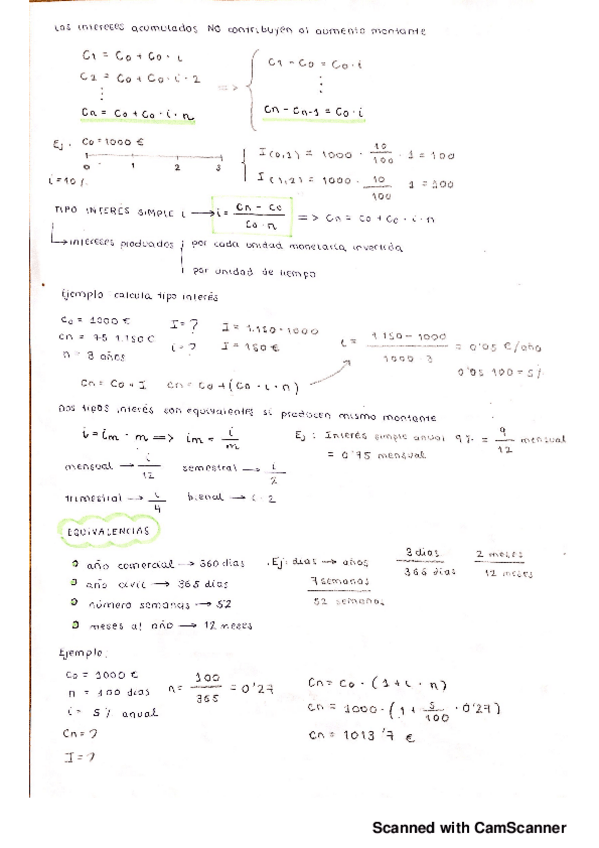 Los intereses acumulados NO contribuyen al aumento montante
C1 = C0 + C0 · i
C2 = C0 + C0 · i · 2
⋮
Cn = C0 + C0 · i · n
=>
C1 - C0 = C0 · i
⋮
Cn - Cn-1 = C0 · i
Ej. C0 = 1000 €
0 1 2 3
i = 10 %
I(0,1) = 1000 · 10/100 · 1 = 100
I(1,2) = 1000 · 10/100 1 = 100
TIPO INTERES SIMPLE i → i = Cn - C0 / C0 · n => Cn = C0 + C0 · i · n
intereses producidos por cada unidad monetaria invertida
por unidad de tiempo
Ejemplo calcula tipo interés
C0 = 1000 €
n = 3 años
I = ?
i = ?
I = 1.150 - 1000
I = 150 €
i = 1.150 - 1000 / 1000 · 3 = 0'05 €/año
0'05 100 = 5 %
Cn = C0 + I Cn = C0 + (C0 · i · n)
Dos tipos interés son equivalentes si producen mismo montante
i = im · m => im = i/m
Ej: Interés simple anual 9 % = 9/12 mensual
= 0'75 mensual
mensual → i/12 semestral → i/2
trimestral → i/4 bienal → i · 2
EQUIVALENCIAS
año comercial → 360 dias
año civil → 365 dias
número semanas → 52
meses al año → 12 meses
Ej: dias → años 3 dias / 365 dias 2 meses / 12 meses
7 semanas / 52 semanas
Ejemplo:
C0 = 1000 €
n = 100 dias n = 100/365 = 0'27
i = 5 % anual
Cn = ?
I = ?
Cn = C0 · (1 + i · n)
Cn = 1000 · (1 + 5/100 · 0'27)
Cn = 1013'7 €
Scanned with CamScanner